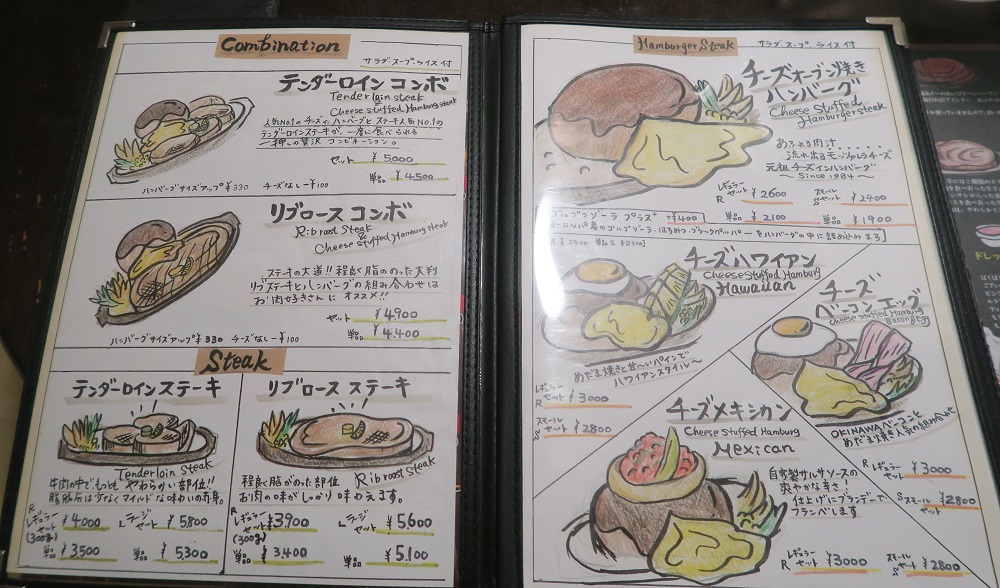 Combination
サラダ スープ ライス 付
テンダーロイン コンボ
Tenderloin steak
&
Cheese stuffed Hamburg steak
人気No.1の チーズinハンバーグと ステーキ人気No.1の
テンダーロインステーキが、一度に食べられる
一押しの贅沢 コンビネーション。
セット ¥5000
単品 ¥4500
ハンバーグサイズアップ ¥330 チーズなし ー¥100
リブロース コンボ
Rib roast Steak
&
Cheese stuffed Hamburg steak
ステーキの大道!! 程良く脂ののった大判
リブステーキとハンバーグの組み合わせは
お肉好きさんに オススメ!!
セット ¥4,900
単品 ¥4,400
ハンバーグサイズアップ ¥330 チーズなし ー¥100
Steak
テンダーロインステーキ
Tenderloin Steak
牛肉の中で、もっとも やわらかい部位!!
脂肪分は少なくマイルドな味わいの赤身。
R レギュラーセット (300g) ¥4,000
L ラージセット ¥5,800
単品 ¥3,500
単品 5300
リブロース ステーキ
Rib roast Steak
程良く脂がのった部位
お肉の味がしっかり味わえます。
R レギュラーセット (300g) ¥3900
L ラージセット ¥5,600
単品 ¥3,400
単品 ¥5,100
Hamburger Steak
サラダ スープ ライス 付
チーズオーブン焼き
ハンバーグ
Cheese Stuffed
Hamburgersteak
あふれる肉汁......
流れ出るモッツァレラチーズ
元祖チーズインハンバーグ
〜 Since 1984 〜
レギュラー
R セット ¥2600
スモール
S セット ¥2400
単品 ¥2,100
単品 ¥1900
ゴルゴンゾーラ プラス +¥400
ヨーロッパ産のゴルゴンゾーラ・はちみつ・ブラックペッパーをハンバーグの中に詰め込みます
チーズハワイアン
Cheese Stuffed Hamburg
Hawaiian
めだま焼きと甘〜いパインで
ハワイアンスタイル〜
レギュラー
R セット ¥3000
スモール
S セット ¥2800
チーズ
ベーコンエッグ
Cheese stuffed Hamburg
Bacon Egg
OKINAWAベーコンと
めだま焼き人気の組み合わせ
R レギュラーセット ¥3000
S スモールセット ¥2800
チーズメキシカン
Cheese Stuffed Hamburg
Mexican
自家製サルサソースの
爽やかな辛さ!
仕上げにブランデーで
フランベします
レギュラーセット ¥3000
スモールセット ¥2800